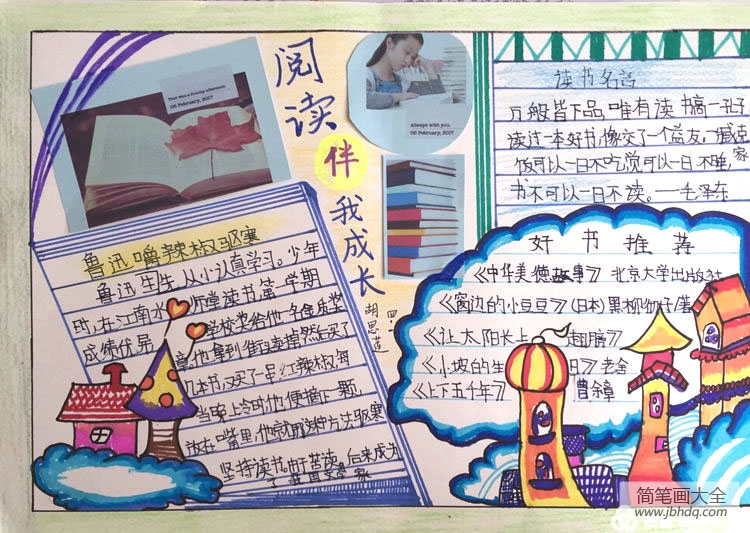 That was a Sunday afternoon.
06 February, 2017
阅读伴我成长
Always with you.
06 February, 2017
四.一
胡思莲
鲁迅嚼辣椒驱寒
鲁迅先生从小认真学习。少年
时,在江南水师学堂读书,第一学期
成绩优异,学校奖给他一名金乐奖
章,他拿到街百卖掉然后买了
几本书,又买了一串红辣椒,每
当晚上冷时,他便摘下一颗,
放在嘴里,他就用这种方法驱寒
坚持读书,由于苦读,后来成为
了我国文学家
读书名言
万般皆下品,唯有读书搞一孔子
读过一本好书,像交了一个益友。一臧克家
饭可以一日不吃,觉可以一日不睡,
书不可以一日不读。——毛泽东
好书推荐
《中华美德故事》 北京大学出版社
《窗边的小豆豆》(日本)黑柳彻子/著
《让太阳长上翅膀》
《小坡的生日》老舍
《上下五千年》 曹余章
简笔画大全
www.jbhdq.com